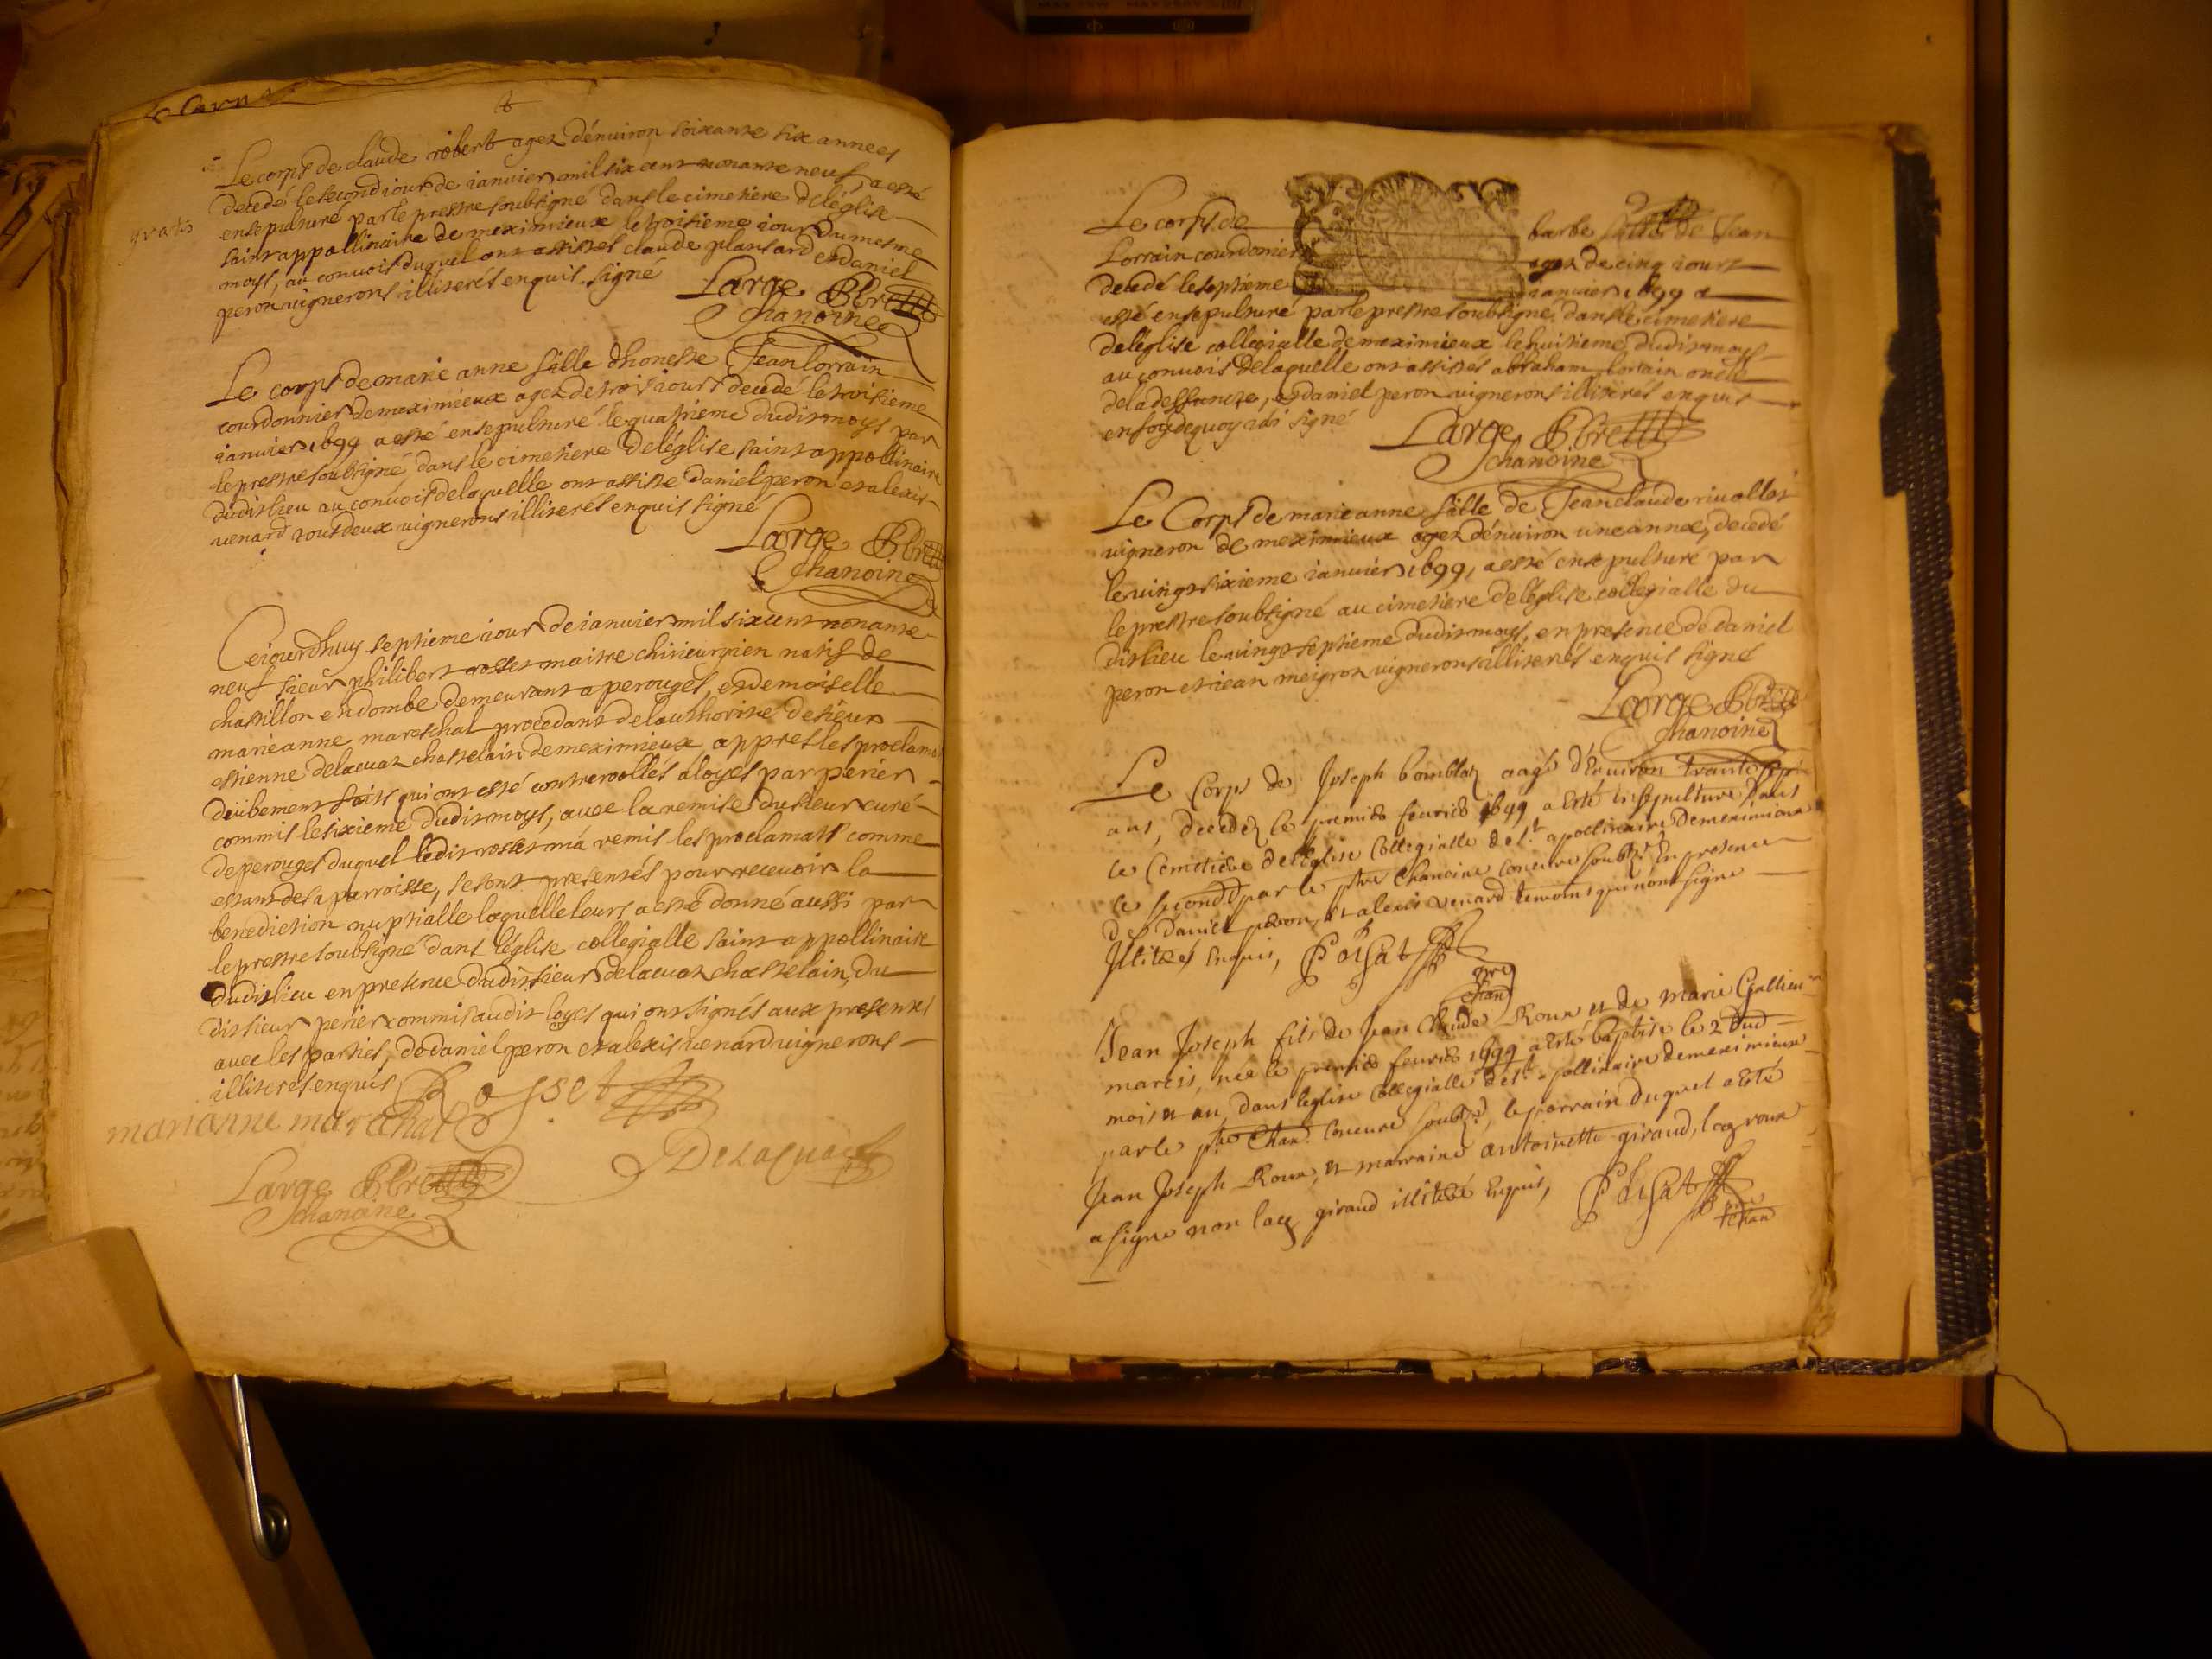 Le corps de claude robert agez dénuiron soixante six annees
decedé le second iour de ianuier mil six cent nonante neuf, a esté
ensepulturé par le prestre soubsigné dans le cimetiere de léglise
saint appollinaire de meximieux le troisieme iour du mesme
moys, au conuois duquel ont assistes claude plansard et daniel
peron uignerons illiterés enquis. signé
gratis
Large Pbre
chanoine
Le corps de marie anne fille dhoneste Jean lorrain
courdonnier de meximieux agez de trois iours decedé le troisieme
ianuier 1699 a esté ensepulturé le quatrieme dudit moys par
le prestre soubsigné dans le cimetiere de léglise saint appollinaire
dudit lieu au conuois de laquelle ont assiste daniel peron et alexis
uenard tous deux uignerons illiterés enquis signé
Large Pbre
chanoine
Ceiourdhuy septieme iour de ianuier mil six cent nonante
neuf sieur philibert rosset maitre chirieurgien natif de
chastillon en dombe demeurant a perouges, et demoiselle
marie anne mareschal procedant de lauthorité de sieur
estienne delacuaz chastelain de meximieux appres les proclama
deübement faits qui ont esté contrerollés a loyes par perier
commis le sixieme dudit moys, auec la remise du sieur curé
de perouges duquel ledit rosset má remis les proclamats comme
estant de sa parroisse, se sont presentés pour receuoir la
benediction nuptialle laquelle leurs a esté donné aussi par
le prestre soubsigné dans léglise collegialle saint appollinaire
dudit lieu en presence dudit sieur delacuaz chastelain, du
dit sieur perier commis audit loyes qui ont signés aux presentes
auec les parties, de daniel peron et alexis uenard uignerons
illiteres enquis
Rosset
marianne marechal
Delacuaz
Large Pbre
chanoine
2
Le corps de barbe fille de Jean
Lorrain courdonnier agez de cinq iours
decedé le septieme ianuier 1699 a
esté ensepulturé par le prestre soubsigné, dans le cimetiere
de léglise collegialle de meximieux le huitieme dudit moys
au conuois de laquelle ont assistés abraham lorrain oncle
de la deffuncte, et daniel peron uignerons illiterés enquis
en foy de quoy iái signé
Large Pbre
chanoine
Le Corps de marie anne fille de Jean claude riuollet
uigneron de meximieux agez dénuiron une année, decedé
le uingt sixieme ianuier 1699, a esté ensepulturé par
le prestre soubsigné au cimetiere de léglise collegialle du
dit lieu le uingt septieme dudit moys, en presence de daniel
peron et iean meigron uignerons illiterés enquis signé
Large Pbre
chanoine
Le Corps de Joseph bomblaz aagé d'enuiron trante
ans, decedez le premier feurier 1699 a esté insepulturé dans
le Cemetiere de léglise Collegialle de st. apollinaire de meximieux
le second par le ptre Chanoine Concuré soubz.né En presence
de Daniel peron, et alexis venard temoins qui n'ont signe
Illiteres enquis, Poisat
ptre
chan
Jean Joseph fils de Jean Claude Roux et de marie Gallien
maries, nee le premier feurier 1699 a esté baptisé le 2 dud
mois et an, dans leglise Collegialle de st. apollinaire de meximieux
par le ptre Chan. Concuré soubz.né, le parrain duquel a esté
Jean Joseph Roux, et marraine antoinette giraud, lag roux
a signe non lad giraud illiteré enquis, Poisat
ptre
chan